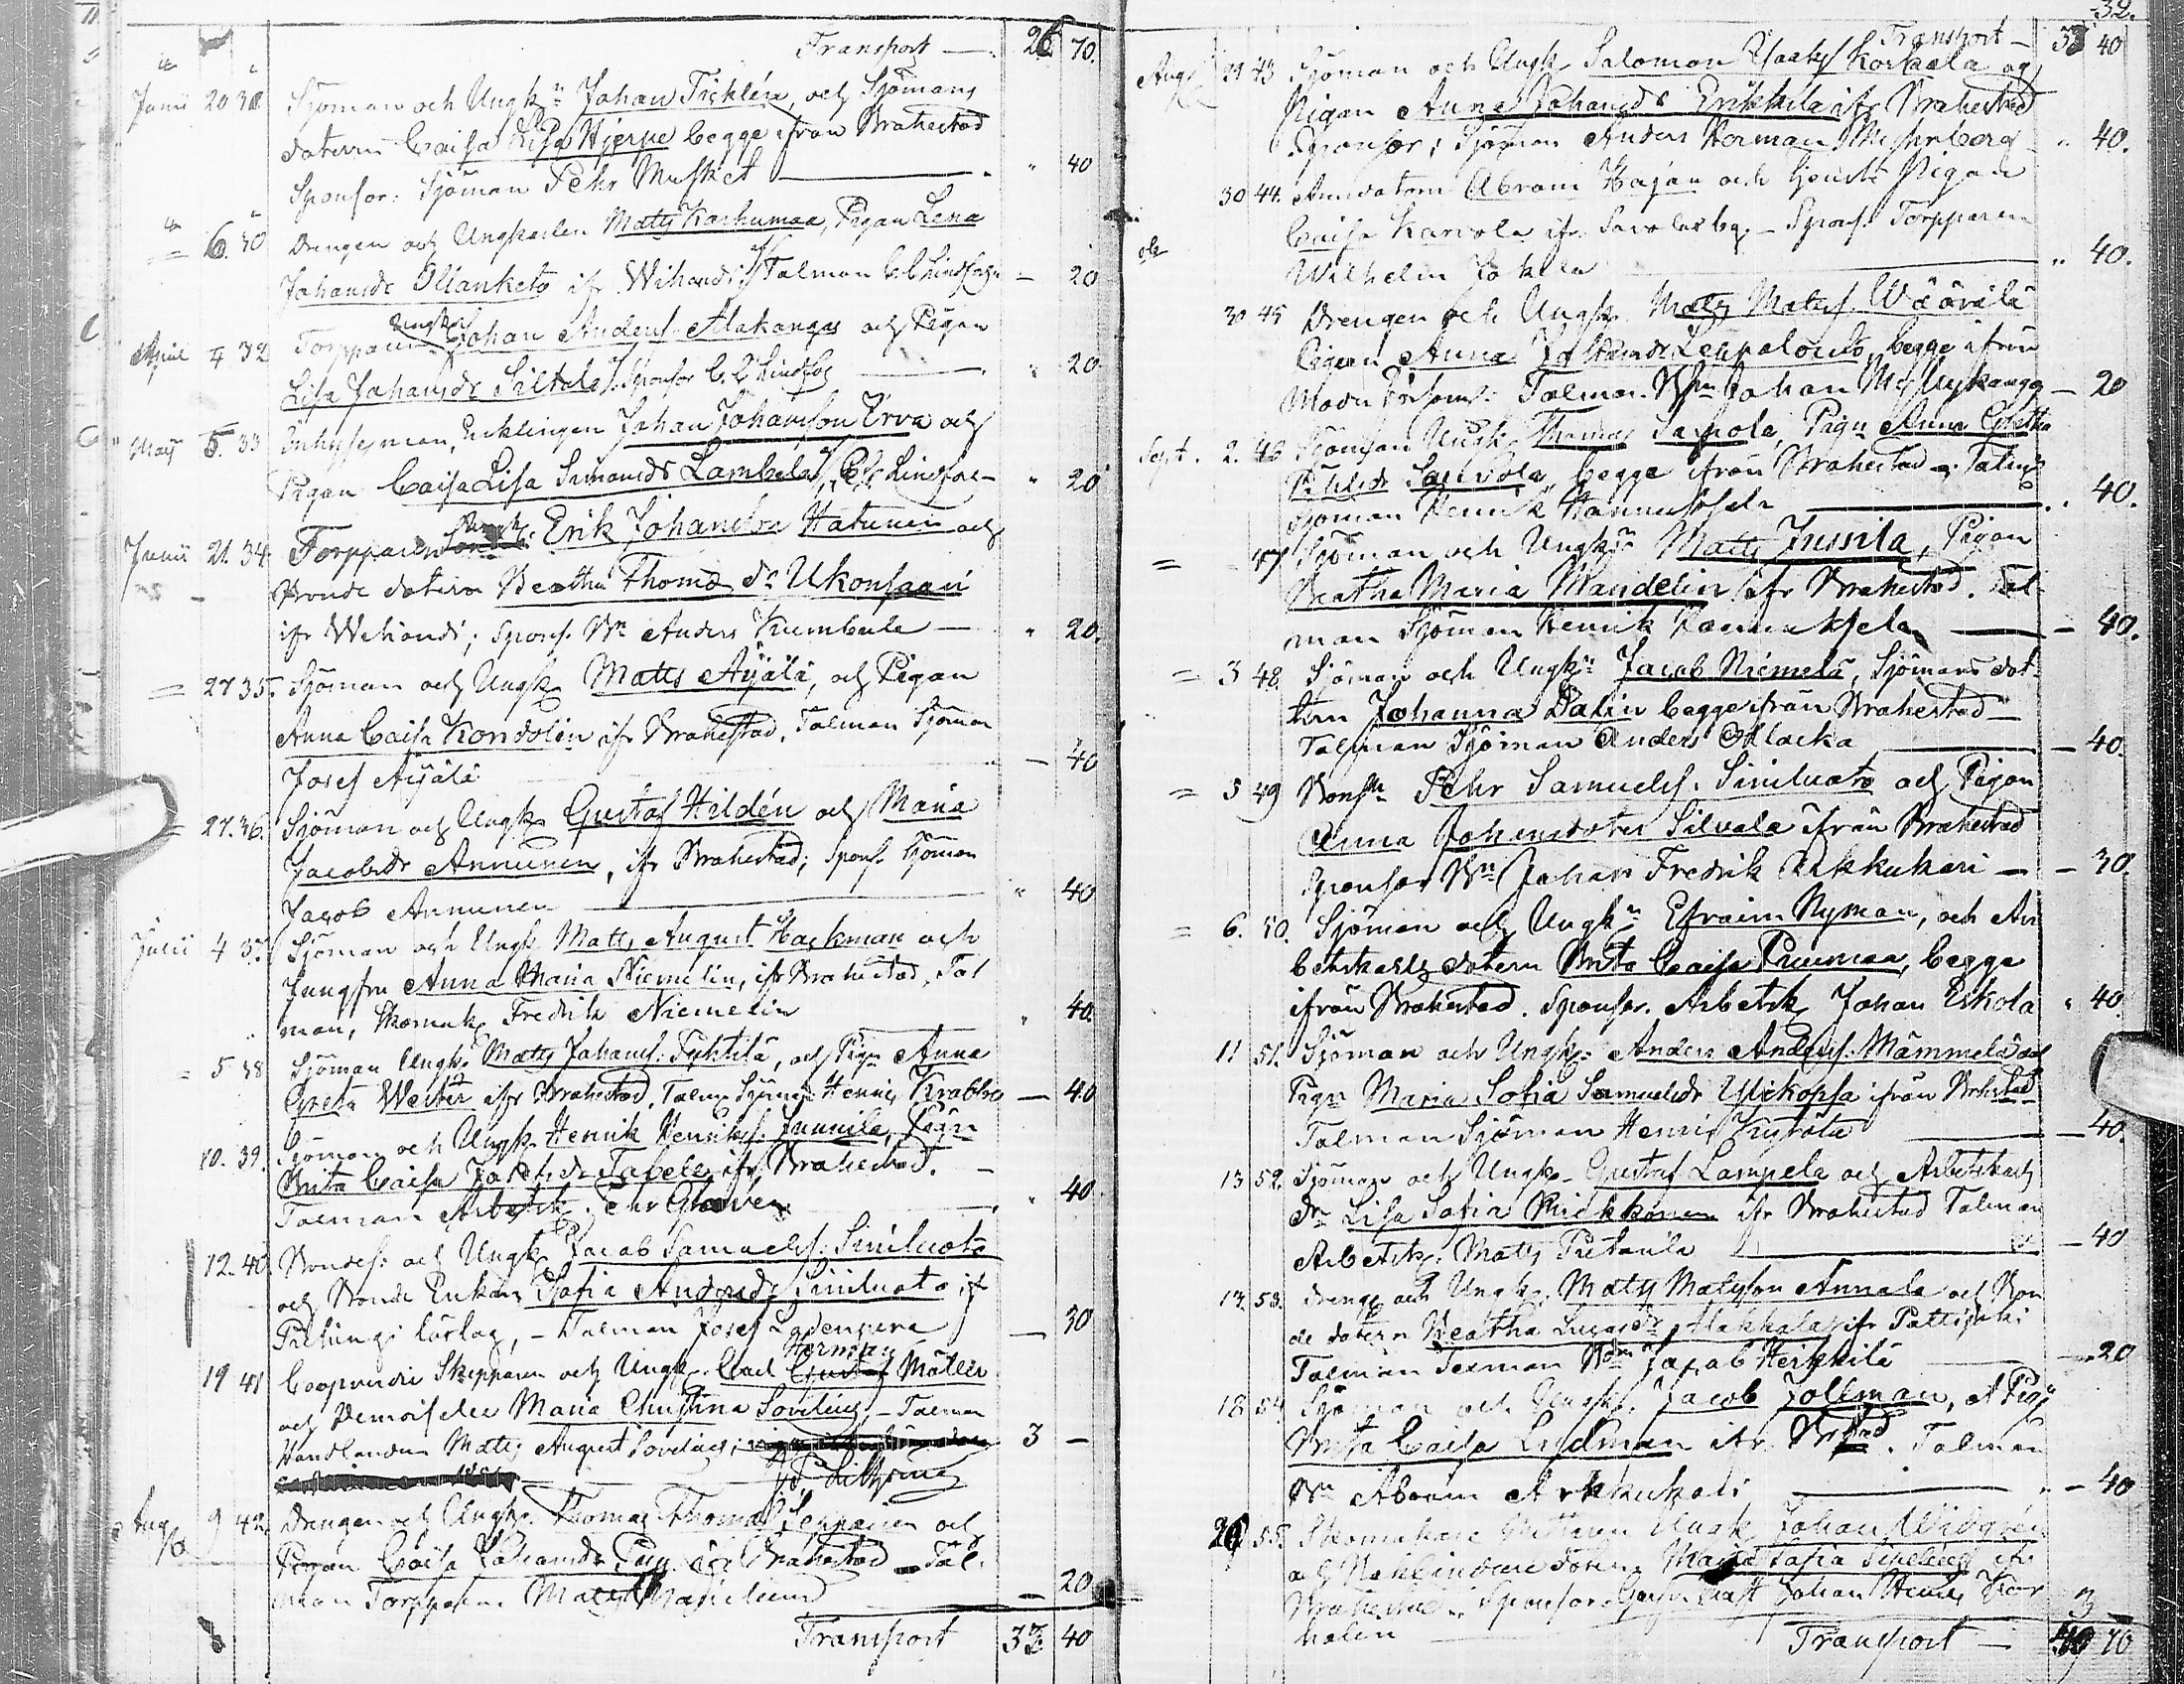 Transport — 26 70.
Junii 20 Sjöman och Ungk:n Johan Ticklén, och Sjömans
dotern Caisa Lisa Hjerpe begge ifrån Brahestad
Sponsor: Sjöman Pehr Musket — " 40
6. 30 Drengen och Ungkarlen Matts Karhumaa, Pigan Lena
Johansdr Ollanketo ifr Wihandi; Talman C C Lindfors — 20
April 4 32 Torpparen Ungk. Johan Anders. Alakangas och Pigan
Lisa Johansdr Siltala. Sponsor C. C Lindfors " 20
May 5. 33 Inhysesman, Enklingen Johan Johansson Erva och
Pigan Caisa Lisa Simonsdr Lambela, C C Lindfors — " 20
Junii 21. 34. Torpparen Erik Johansson Hatunen och
Bonde dotern Beatha Thomæ dr Ukonsaari
ifr Wihandi; Spons. Bn Anders Kumbula — " 20.
= 27 35. Sjöman och Ungk. Matts Äijälä, och Pigan
Anna Caisa Kondolin ifr Brahestad. Talman Sjöman
Josef Äijälä — 40
= 27. 36. Sjöman och Ungk. Gustaf Hildén och Maria
Jacobsdr Annunen, ifr Brahestad; Spons. Sjöman
Jacob Annunen " 40
Julii 4 37 Sjöman och Ungk Matts August Hackman och
Jungfru Anna Maria Niemelin, ifr Brahestad, Tal
man, Skomak. Fredrik Niemelin " 40.
= 5 38 Sjöman Ungk. Matts Johans. Tyktilä, och Pign Anna
Greta Weiter ifr Brahestad. Talm Sjöman Henric Krabba — 40
10. 39. Sjöman och Ungk. Henrik Henriks. Junnila, Pign
Brita Caisa Jacobsdr Tabell ifr Brahestad. —
Talman Arbetsk. Pehr Glaven " 40
12. 40. Bondes: och Ungk. Jacob Samuels: Siniluoto
och Bonde Enkan Sofia Andersdr Siniluoto ifr
— Talman Josef — 30
19 41 Coopverdi Skepparen och Ungk. Carl Herman Möller
och Demoiselle Maria Christina Sovelius, — Talman
Handlanden Matts August Sovelius; 3 —
Aug 9 42. Drengen och Ungk. Thomas Thomas. Seppänen och
Pigan Caisa Johansdr ifr Brahestad — Tal
man Torpparen Matts — 20
Transport 33 40
32.
Transport — 33 40
Aug 29 43 Sjöman och Ungk Salomon Isaks. Korkala och
Pigan Anna Johansdr Erikkila ifr Brahestad
Sponsor; Sjöman Anders Herman " 40.
30 44. Abram Hajan och Pigan
Caisa Karvola ifr. — Spons. Torpparen
Wilhelm Jokela " 40.
30 45 Drengen och Ungk. Matts Mats. Wäärälä
Pigan Anna Leppaluoto, begge ifrån
Talman Bn Johan — 20
Sept. 2. 46 Sjöman Ungk. Thomas Saivola, Pign Anna Gretha
Saivola, begge ifrån Brahestad — Talm
Sjöman Henrik Hannuksela " 40.
= 47 Sjöman och Ungk:n Matts Jussila, Pigan
Beatha Maria Mandelin ifr Brahestad. Tal-
man Sjöman Henrik Hannuksela — 40.
= 3 48. Sjöman och Ungk:n Jacob Niemelä, Sjömans dot-
tern Johanna Dalin begge ifrån Brahestad —
Talman Sjöman Anders Ollacka — 40.
= 5 49 Bonsn Pehr Samuels. Siniluoto och Pigan
Anna Johansdoter Silvala ifrån Brahestad
Sponsor Bn Johan Fredrik Arkkukari — — 30.
= 6. 50. Sjöman och Ungk:n Efraim Nyman, och Ar
betskarls dotern Brita Caisa Punmaa, begge
ifrån Brahestad. Sponsor. Arbetsk Johan Eskola " 40.
11 51. Sjöman och Ungk: Anders Anders. Mämmelä och
Pign Maria Sofia Samuelsdr Ylikopsa ifrån Brhstad.
Talman Sjöman Henric — 40.
13 52. Sjöman och Ungk. Gustaf Lampela och Arbetskarls
Dr Lisa Sofia Mickkonen ifr Brahestad Talman
Arbetsk: Matts — 40
17. 53. Drenge och Ungk. Matts Matsson Annala och Bon
de dotern Beatha Lucasdr Makkala ifr Pattijoki
Talman Sexman Bdn Jacob Heikkilä — 20
18 54 Sjöman och Ungk. Jacob Jollman, och Pign
Brita Caisa Lydman ifr. Brhstad. Talman
Bn Abram Arkkukari — 40
26 55. Ungk Johan Widgrén
och dotern Maria Sofia Sipelius ifr
Brahestad. Sponsor. Johan Henric
holm 3 —
Transport — 49 10